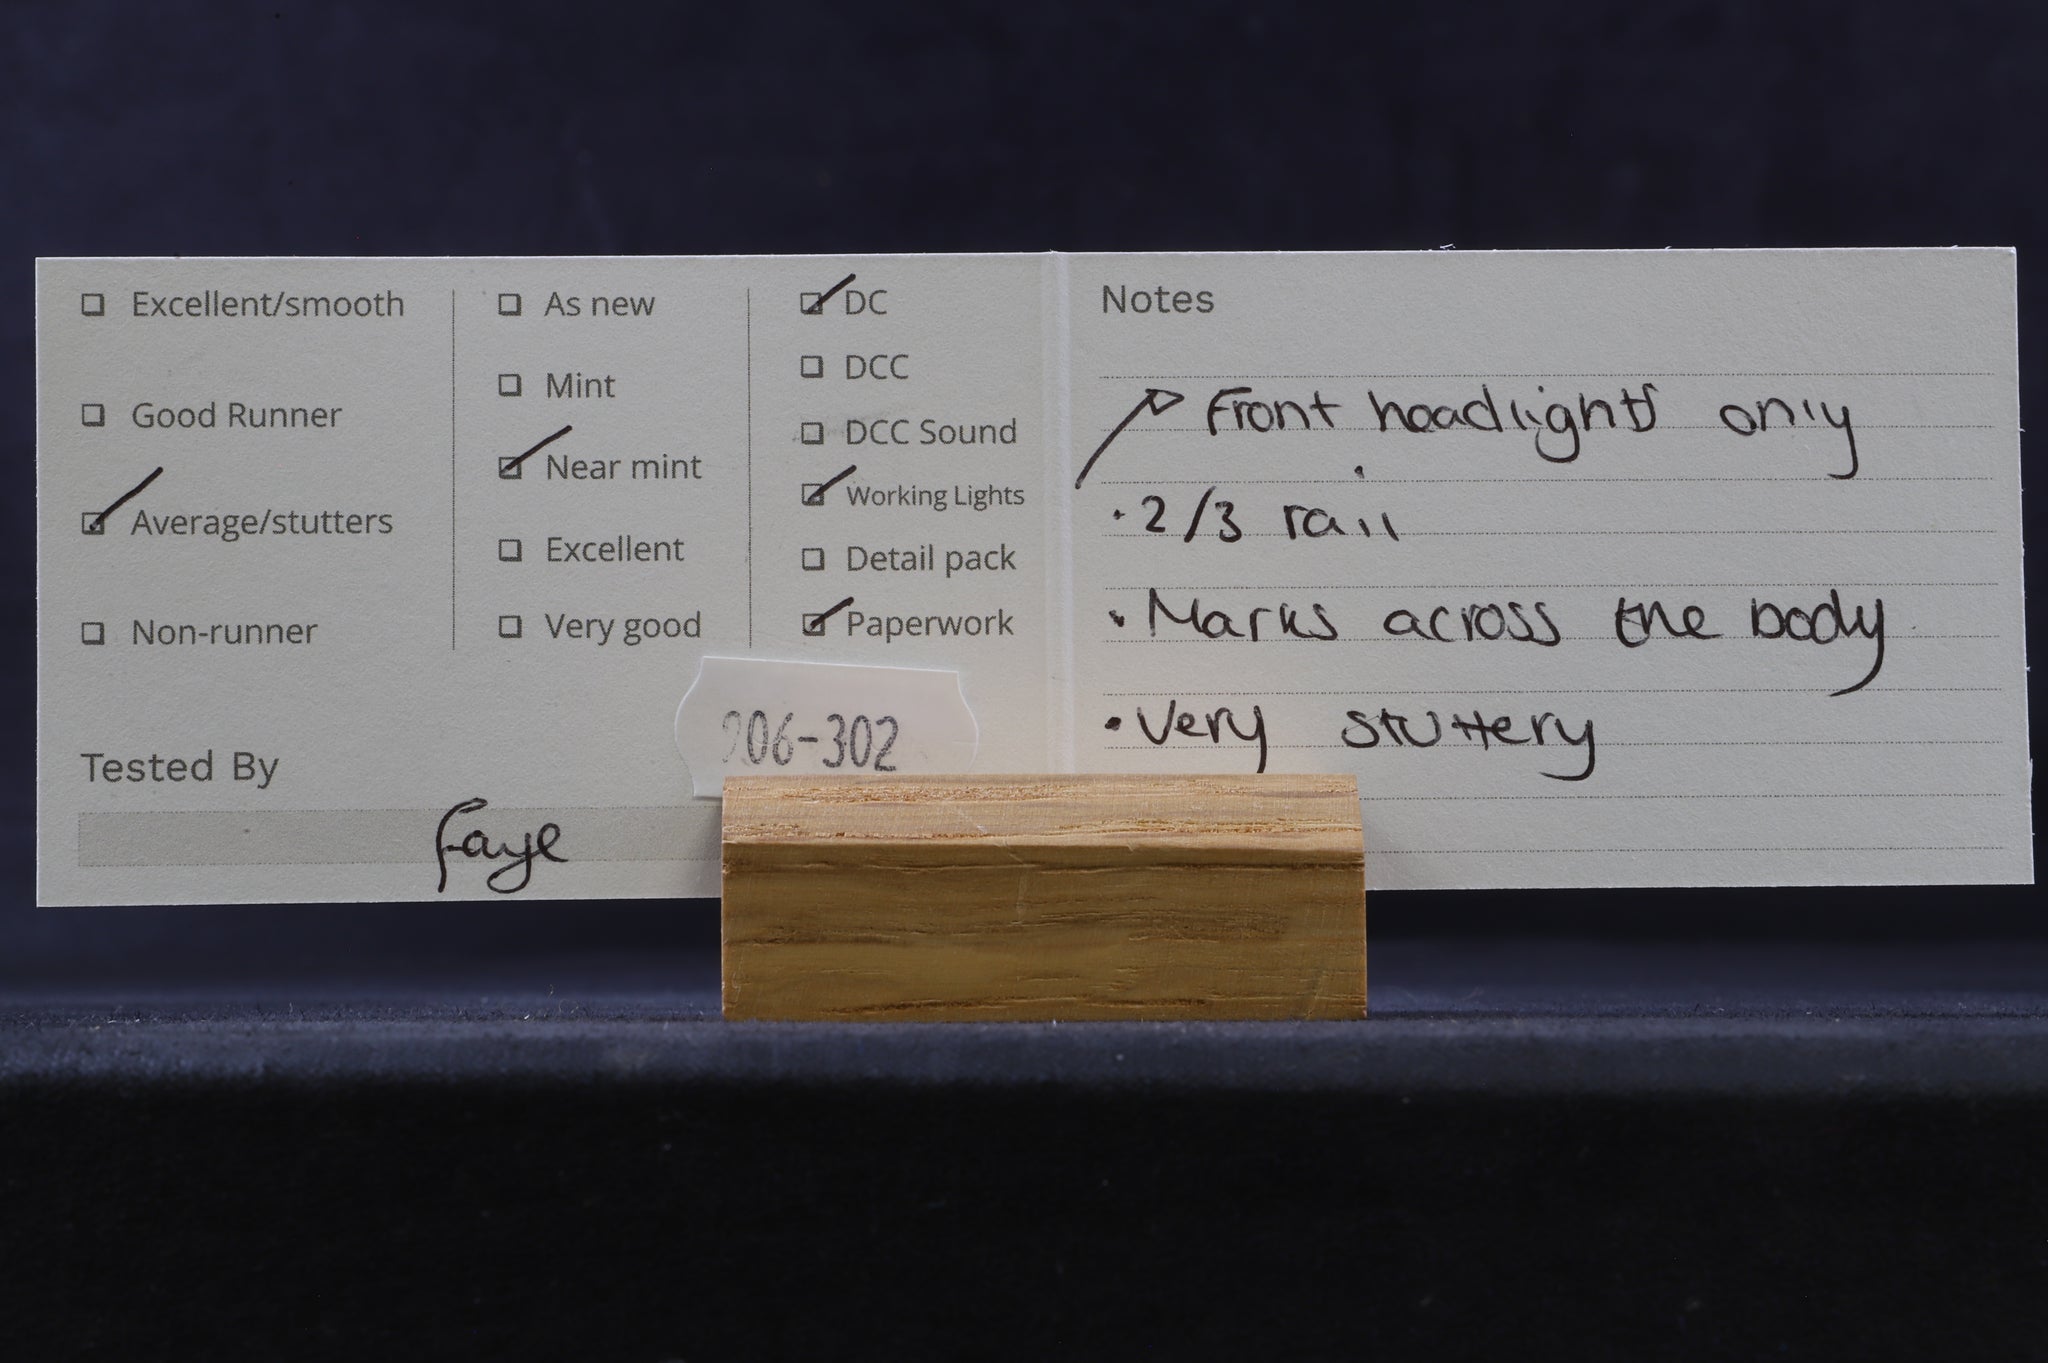 Excellent/smooth
Good Runner
Average/stutters
Non-runner
As new
Mint
Near mint
Excellent
Very good
DC
DCC
DCC Sound
Working Lights
Detail pack
Paperwork
906-302
Tested By
Faye
Notes
Front headlights only
• 2/3 rail
• Marks across the body
• Very stuttery